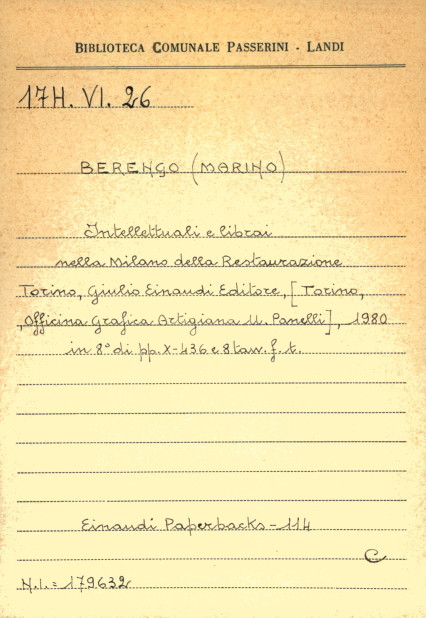 BIBLIOTECA COMUNALE PASSERINI - LANDI
17H. VI. 26
BERENGO (MARINO)
Intellettuali e librai
nella Milano della Restaurazione
Torino, Giulio Einaudi Editore, [Torino,
Officina Grafica Artigiana U. Panelli], 1980
in 8° di pp. X-436 e 8 tav. f. t.
Einaudi Paperbacks - 114
C
N.I. = 179632